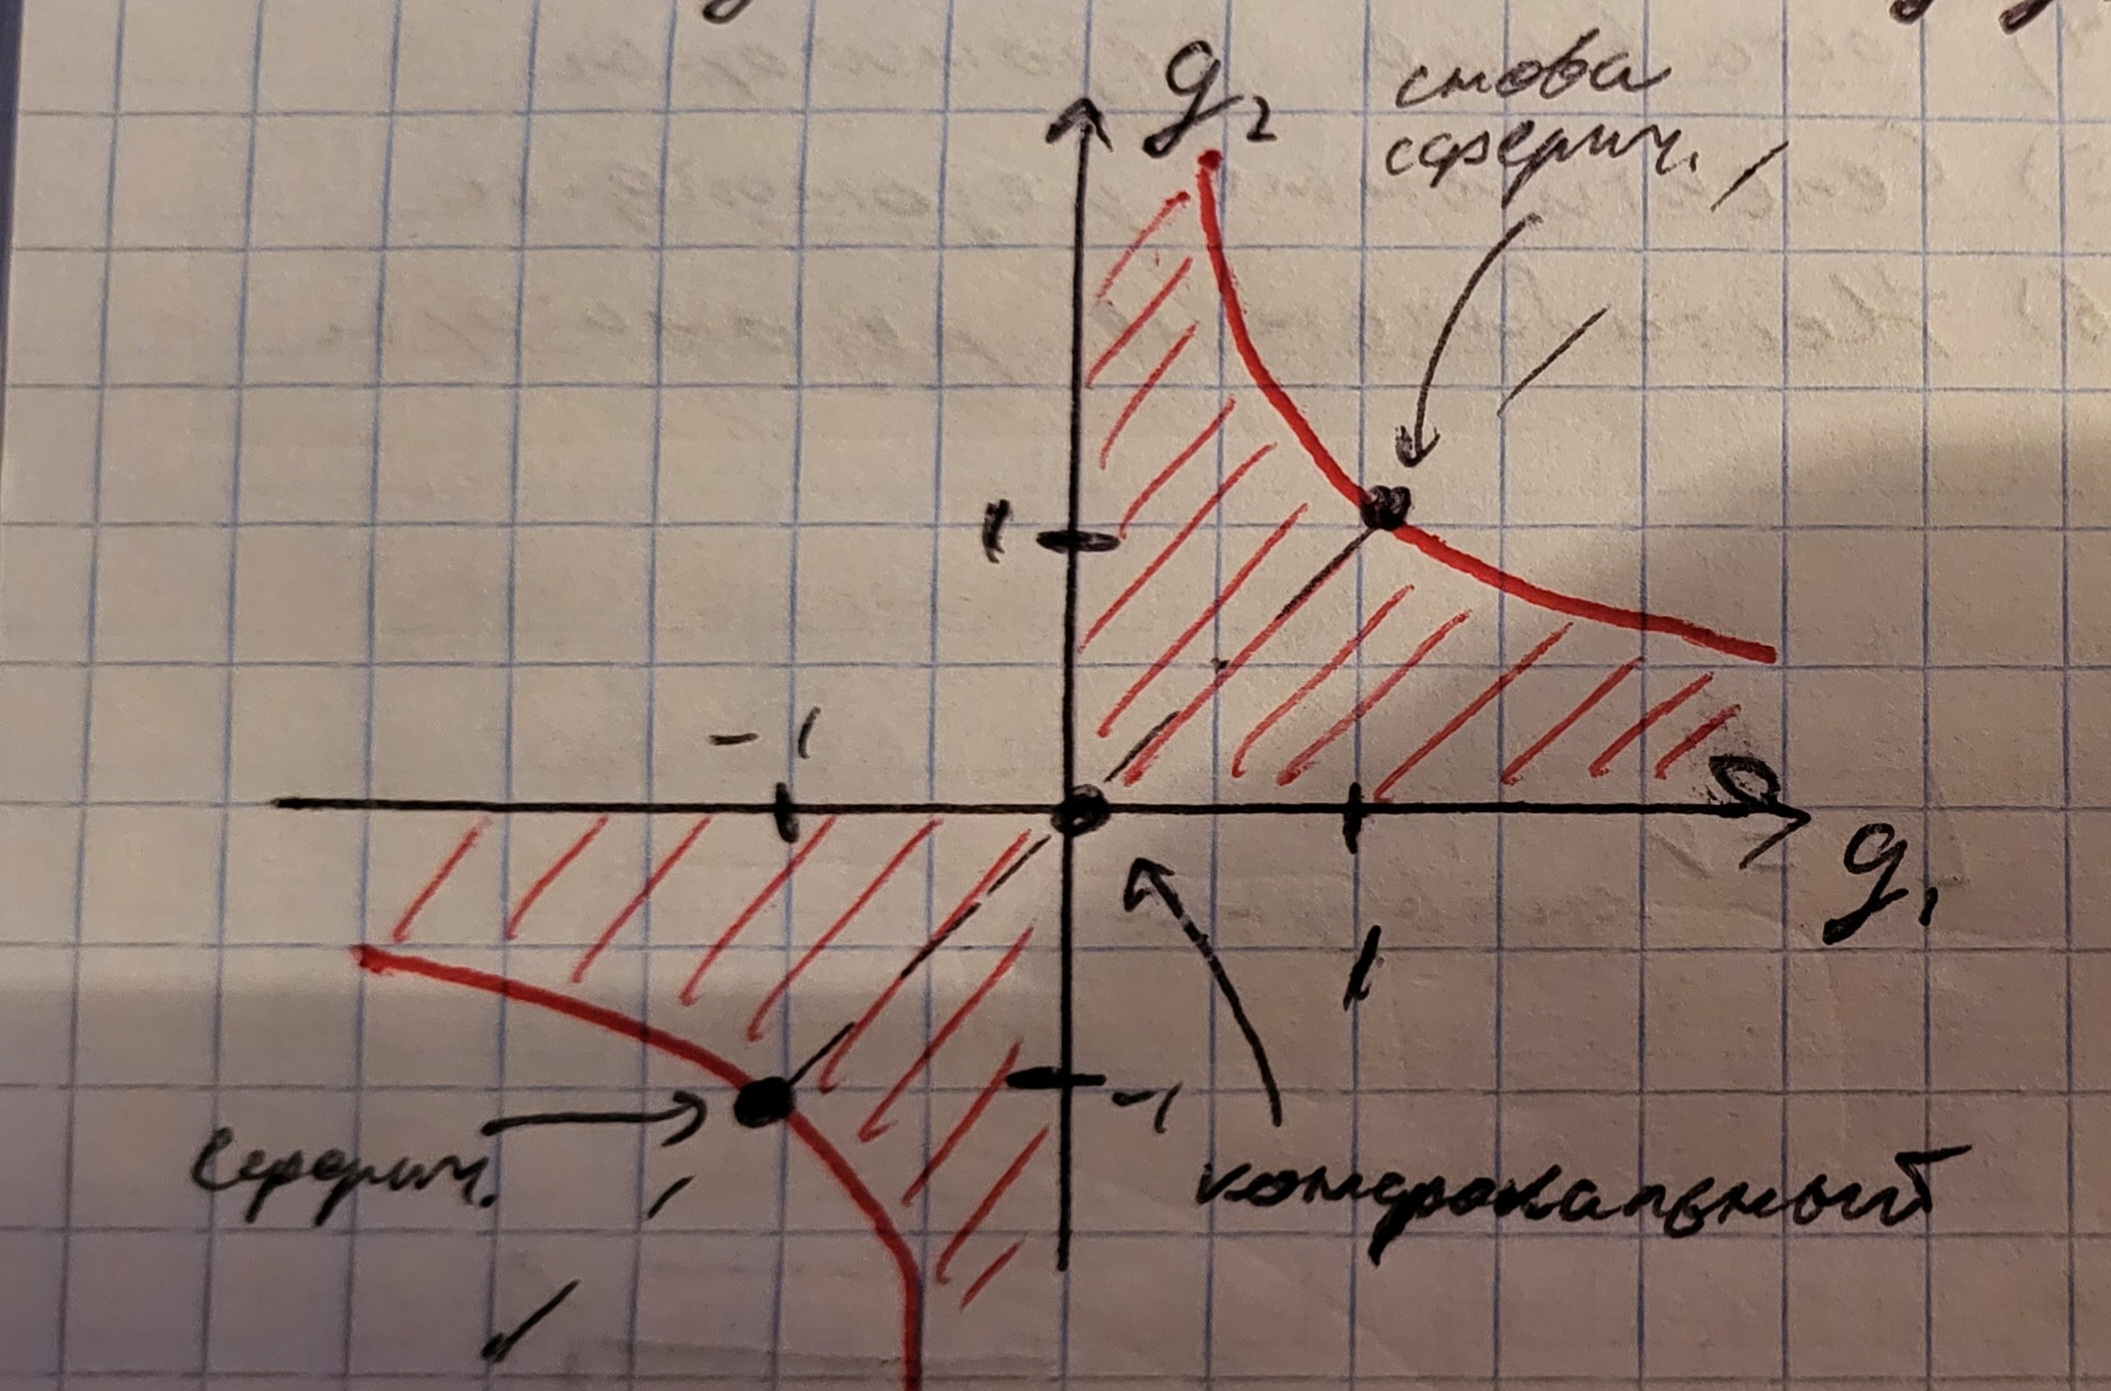 g₂
снова
сферич.
1
-1
g₁
1
-1
сферич.
конфокальный